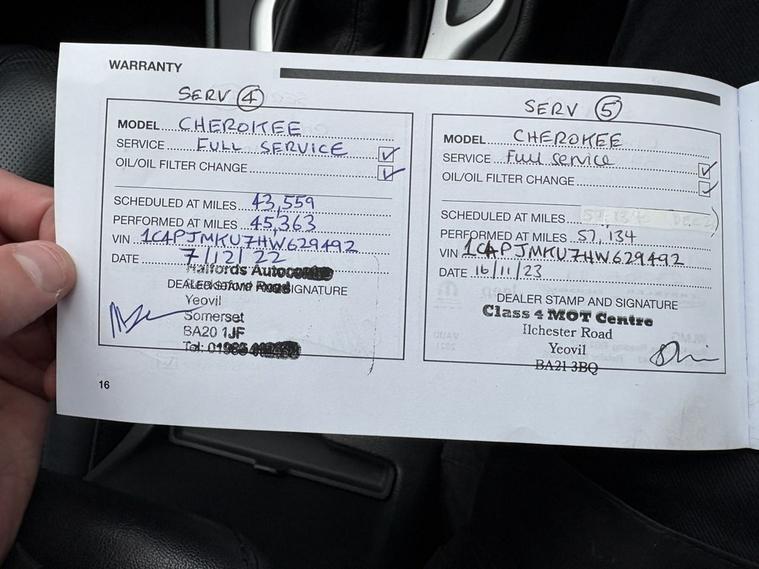 WARRANTY
SERV 4
MODEL CHEROKEE
SERVICE FULL SERVICE
OIL/OIL FILTER CHANGE
SCHEDULED AT MILES 43,559
PERFORMED AT MILES 45,363
VIN 1C4PJMKU7HW629492
DATE 7/12/22
Halfords Autocentre
DEALER STAMP AND SIGNATURE
Yeovil
Somerset
BA20 1JF
Tel: 01935
16
SERV 5
MODEL CHEROKEE
SERVICE Full service
OIL/OIL FILTER CHANGE
SCHEDULED AT MILES
PERFORMED AT MILES 57,134
VIN 1C4PJMKU7HW629492
DATE 16/11/23
DEALER STAMP AND SIGNATURE
Class 4 MOT Centre
Ilchester Road
Yeovil
BA21 3BQ